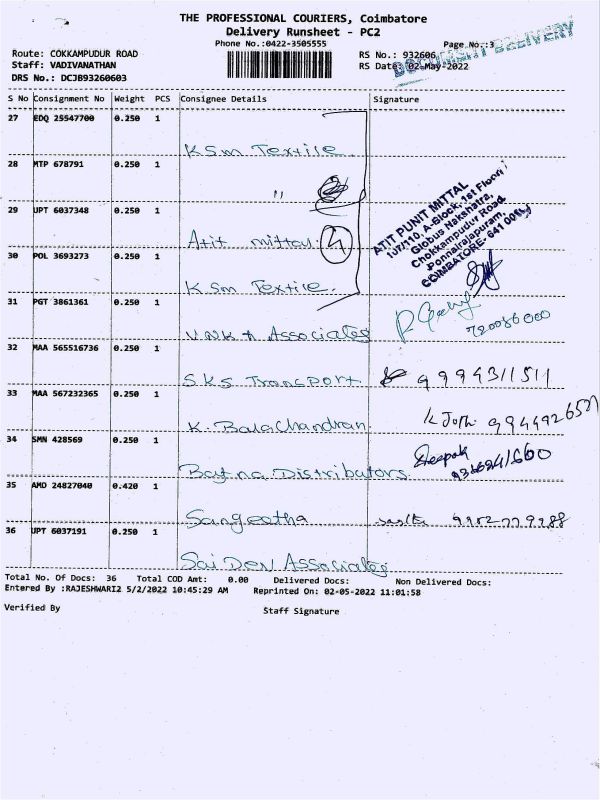 THE PROFESSIONAL COURIERS, Coimbatore
Delivery Runsheet - PC2
Phone No.:0422-3505555
Page No.:3
DOCUMENT DELIVERY
Route: COKKAMPUDUR ROAD
RS No.: 932606
Staff: VADIVANATHAN
RS Date: 02-May-2022
DRS No.: DCJB93260603
S No Consignment No Weight PCS Consignee Details Signature
27 EDQ 25547700 0.250 1
KSM Textile
28 MTP 678791 0.250 1
"
29 UPT 6037348 0.250 1
Atit mittal 4
ATIT PUNIT MITTAL
107/110, A-Block, 1st Floor
Globus Nakshatra,
Chokkampudur Road
Ponnairajapuram,
COIMBATORE- 641 001
30 POL 3693273 0.250 1
KSM Textile.
31 PGT 3861361 0.250 1
VNK & Associates
32 MAA 565516736 0.250 1
SKS Transport 9994311511
33 MAA 567232365 0.250 1
K. BalaChandran
34 SMN 428569 0.250 1
Distributors Deepak
35 AMD 24827040 0.420 1
Sangeetha
36 UPT 6037191 0.250 1
Sai Dev Associates
Total No. Of Docs: 36 Total COD Amt: 0.00 Delivered Docs: Non Delivered Docs:
Entered By :RAJESHWARI2 5/2/2022 10:45:29 AM Reprinted On: 02-05-2022 11:01:58
Verified By Staff Signature